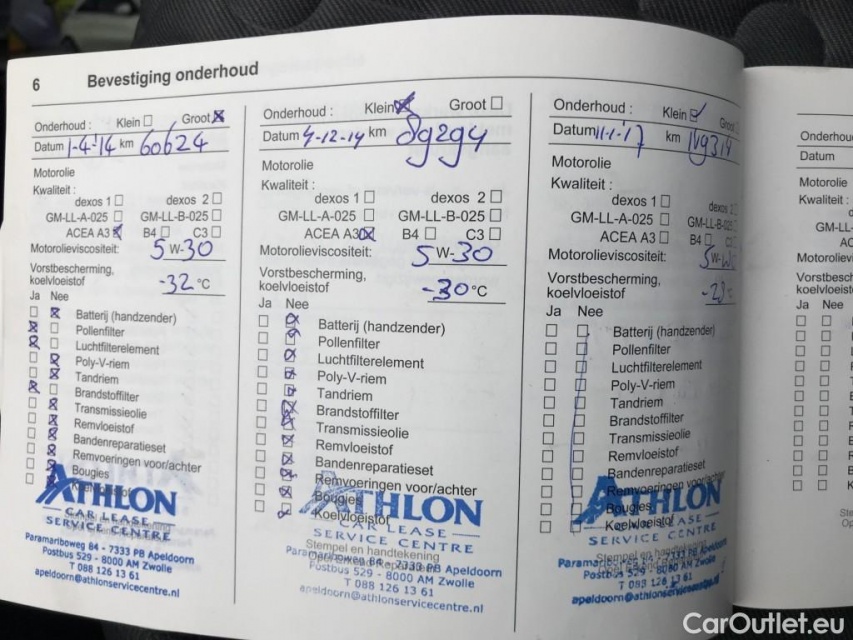 6 Bevestiging onderhoud
Onderhoud : Klein Groot
Datum 1-4-14 km 60624
Motorolie
Kwaliteit :
dexos 1 dexos 2
GM-LL-A-025 GM-LL-B-025
ACEA A3 B4 C3
Motorolieviscositeit: 5 W-30
Vorstbescherming,
koelvloeistof -32 °C
Ja Nee
Batterij (handzender)
Pollenfilter
Luchtfilterelement
Poly-V-riem
Tandriem
Brandstoffilter
Transmissieolie
Remvloeistof
Bandenreparatieset
Remvoeringen voor/achter
Bougies
Koelvloeistof
ATHLON
CAR LEASE
SERVICE CENTRE
Paramariboweg 84 - 7333 PB Apeldoorn
Postbus 529 - 8000 AM Zwolle
T 088 126 13 61
apeldoorn@athlonservicecentre.nl
Onderhoud : Klein Groot
Datum 4-12-14 km 89294
Motorolie
Kwaliteit :
dexos 1 dexos 2
GM-LL-A-025 GM-LL-B-025
ACEA A3 B4 C3
Motorolieviscositeit: 5 W-30
Vorstbescherming,
koelvloeistof -30 °C
Ja Nee
Batterij (handzender)
Pollenfilter
Luchtfilterelement
Poly-V-riem
Tandriem
Brandstoffilter
Transmissieolie
Remvloeistof
Bandenreparatieset
Remvoeringen voor/achter
Bougies
Koelvloeistof
ATHLON
CAR LEASE
SERVICE CENTRE
Stempel en handtekening
Paramariboweg 84 - 7333 PB Apeldoorn
Postbus 529 - 8000 AM Zwolle
T 088 126 13 61
apeldoorn@athlonservicecentre.nl
Onderhoud : Klein Groot
Datum 11-1-17 km
Motorolie
Kwaliteit :
dexos 1 dexos 2
GM-LL-A-025 GM-LL-B-025
ACEA A3 B4 C3
Motorolieviscositeit: 5W-
Vorstbescherming,
koelvloeistof °C
Ja Nee
Batterij (handzender)
Pollenfilter
Luchtfilterelement
Poly-V-riem
Tandriem
Brandstoffilter
Transmissieolie
Remvloeistof
Bandenreparatieset
Remvoeringen voor/achter
Bougies
Koelvloeistof
ATHLON
CAR LEASE
SERVICE CENTRE
Stempel en handtekening
Postbus 529 - 8000 AM Zwolle
T 088 126 13 61
apeldoorn@athlonservicecentre.nl
Onderhoud
Datum
Motorolie
Kwaliteit :
GM-LL-
ACEA
Motorolievis
Vorstbesch
koelvloeist
Ja Nee
CarOutlet.eu